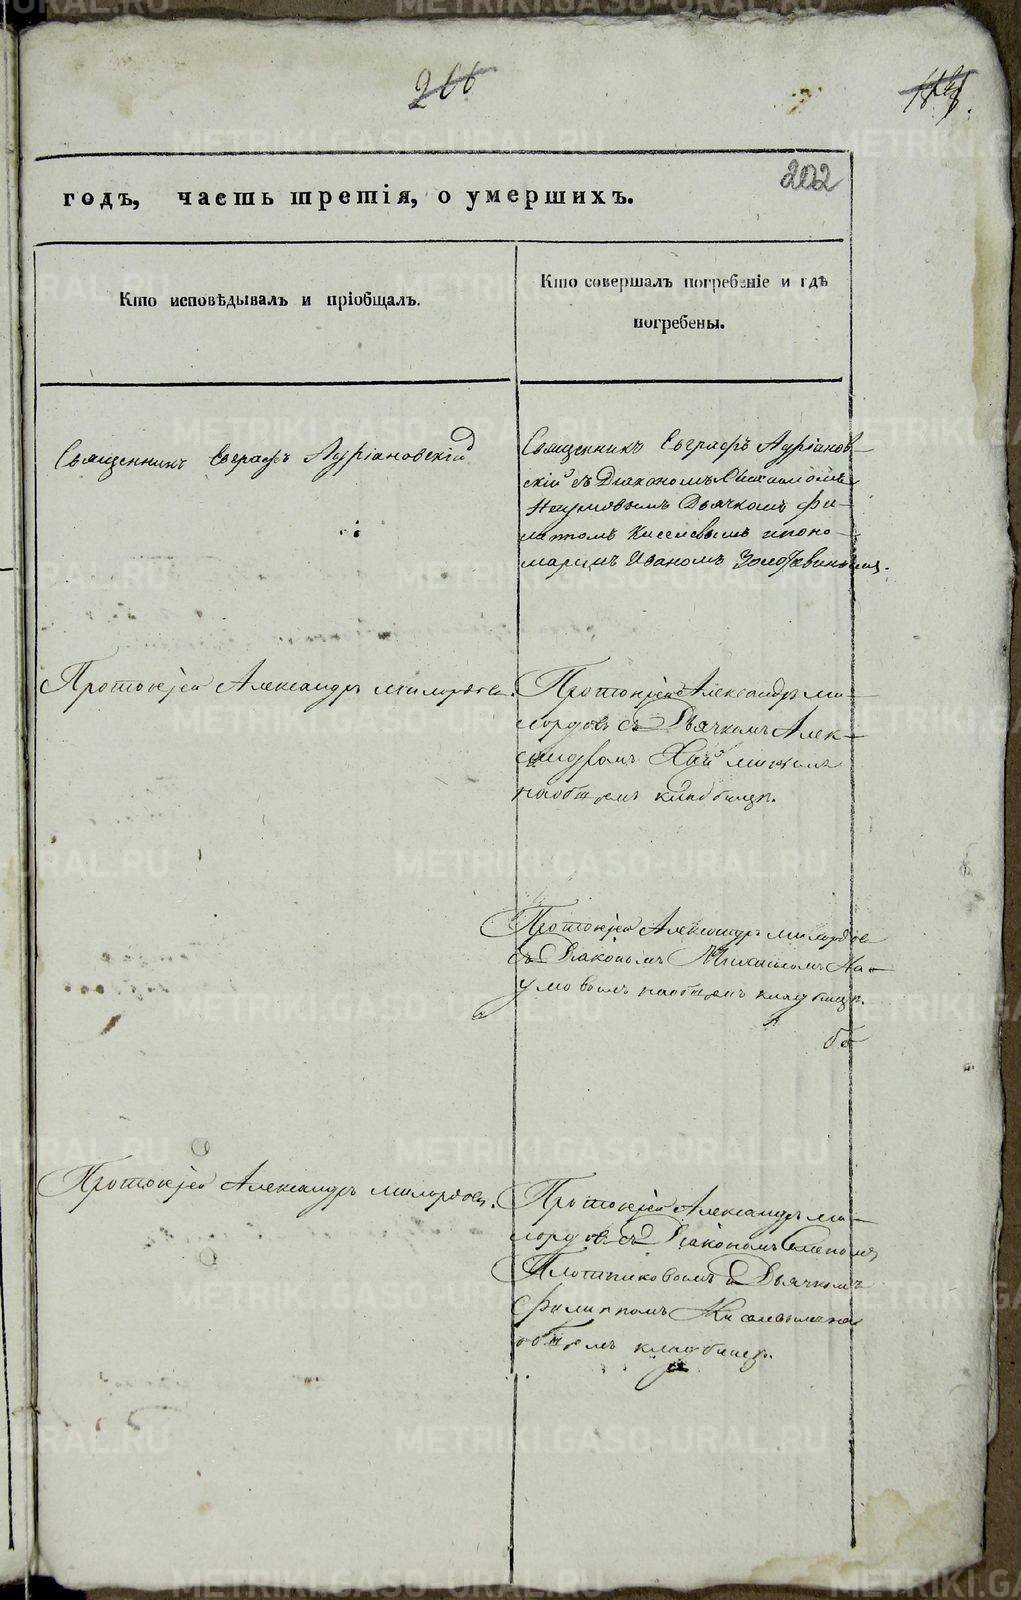 266
202
годъ, часть третія, о умершихъ.
Кто исповѣдывалъ и пріобщалъ.
Кто совершалъ погребеніе и гдѣ
погребены.
Священникъ Евграфъ Адріановскій
Священникъ Евграфъ Адріанов-
скій съ Діакономъ
Наумовымъ Дьячкомъ Фи-
липпомъ Киселевымъ и поно-
маремъ Иваномъ
Протоіерей Александръ Милордовъ.
Протоіерей Александръ Ми-
лордовъ съ Дьячкомъ Алек-
сандромъ
на общемъ кладбищѣ.
Протоіерей Александръ Милордовъ
съ Діакономъ Михаиломъ На-
умовымъ на общемъ кладбищѣ.
Протоіерей Александръ Милордовъ.
Протоіерей Александръ Ми-
лордовъ съ Діакономъ
Плотниковымъ и Дьячкомъ
Филиппомъ Киселевымъ на
общемъ кладбищѣ.
METRIKI.GASO-URAL.RU